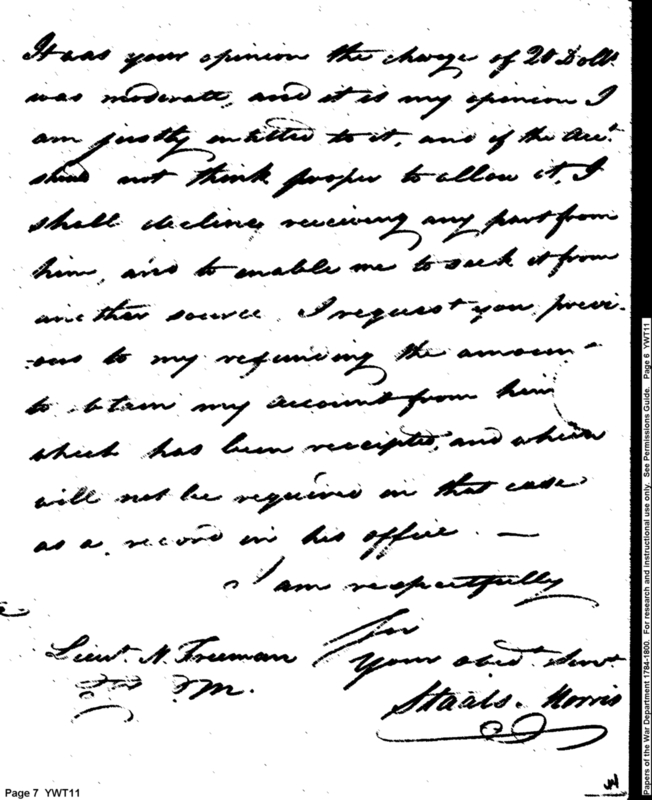 It was your opinion the charge of 20 Dolls.
was moderate, and it is my opinion I
am justly intitled to it, and if the Acct.
should not think proper to allow it, I
shall decline receiving any part from
him, and to enable me to seek it from
another source, I request you previ-
-ous to my refunding the amount
to obtain my account from him
which has been receipted, and which
will not be required in that case
as a record in his office. —
I am respectfully
Sir
Lieut. N. Freeman Your obedt. Servt.
M.
Staats Morris
Page 7 YWT11
Papers of the War Department 1784-1800. For research and instructional use only. See Permissions Guide. Page 6 YWT11